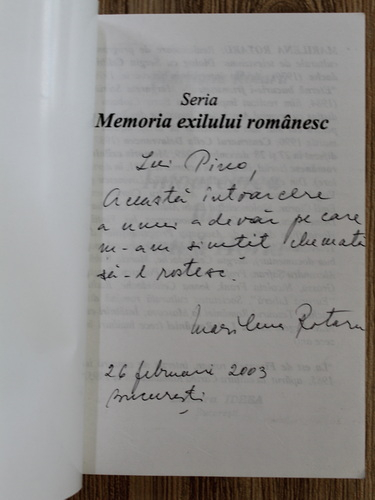 Seria
Memoria exilului românesc
Lui Pino,
Această întoarcere
a unui adevăr pe care
m-am simțit chemată
să-l rostesc.
Marilena Rotaru
26 februarie 2003
București